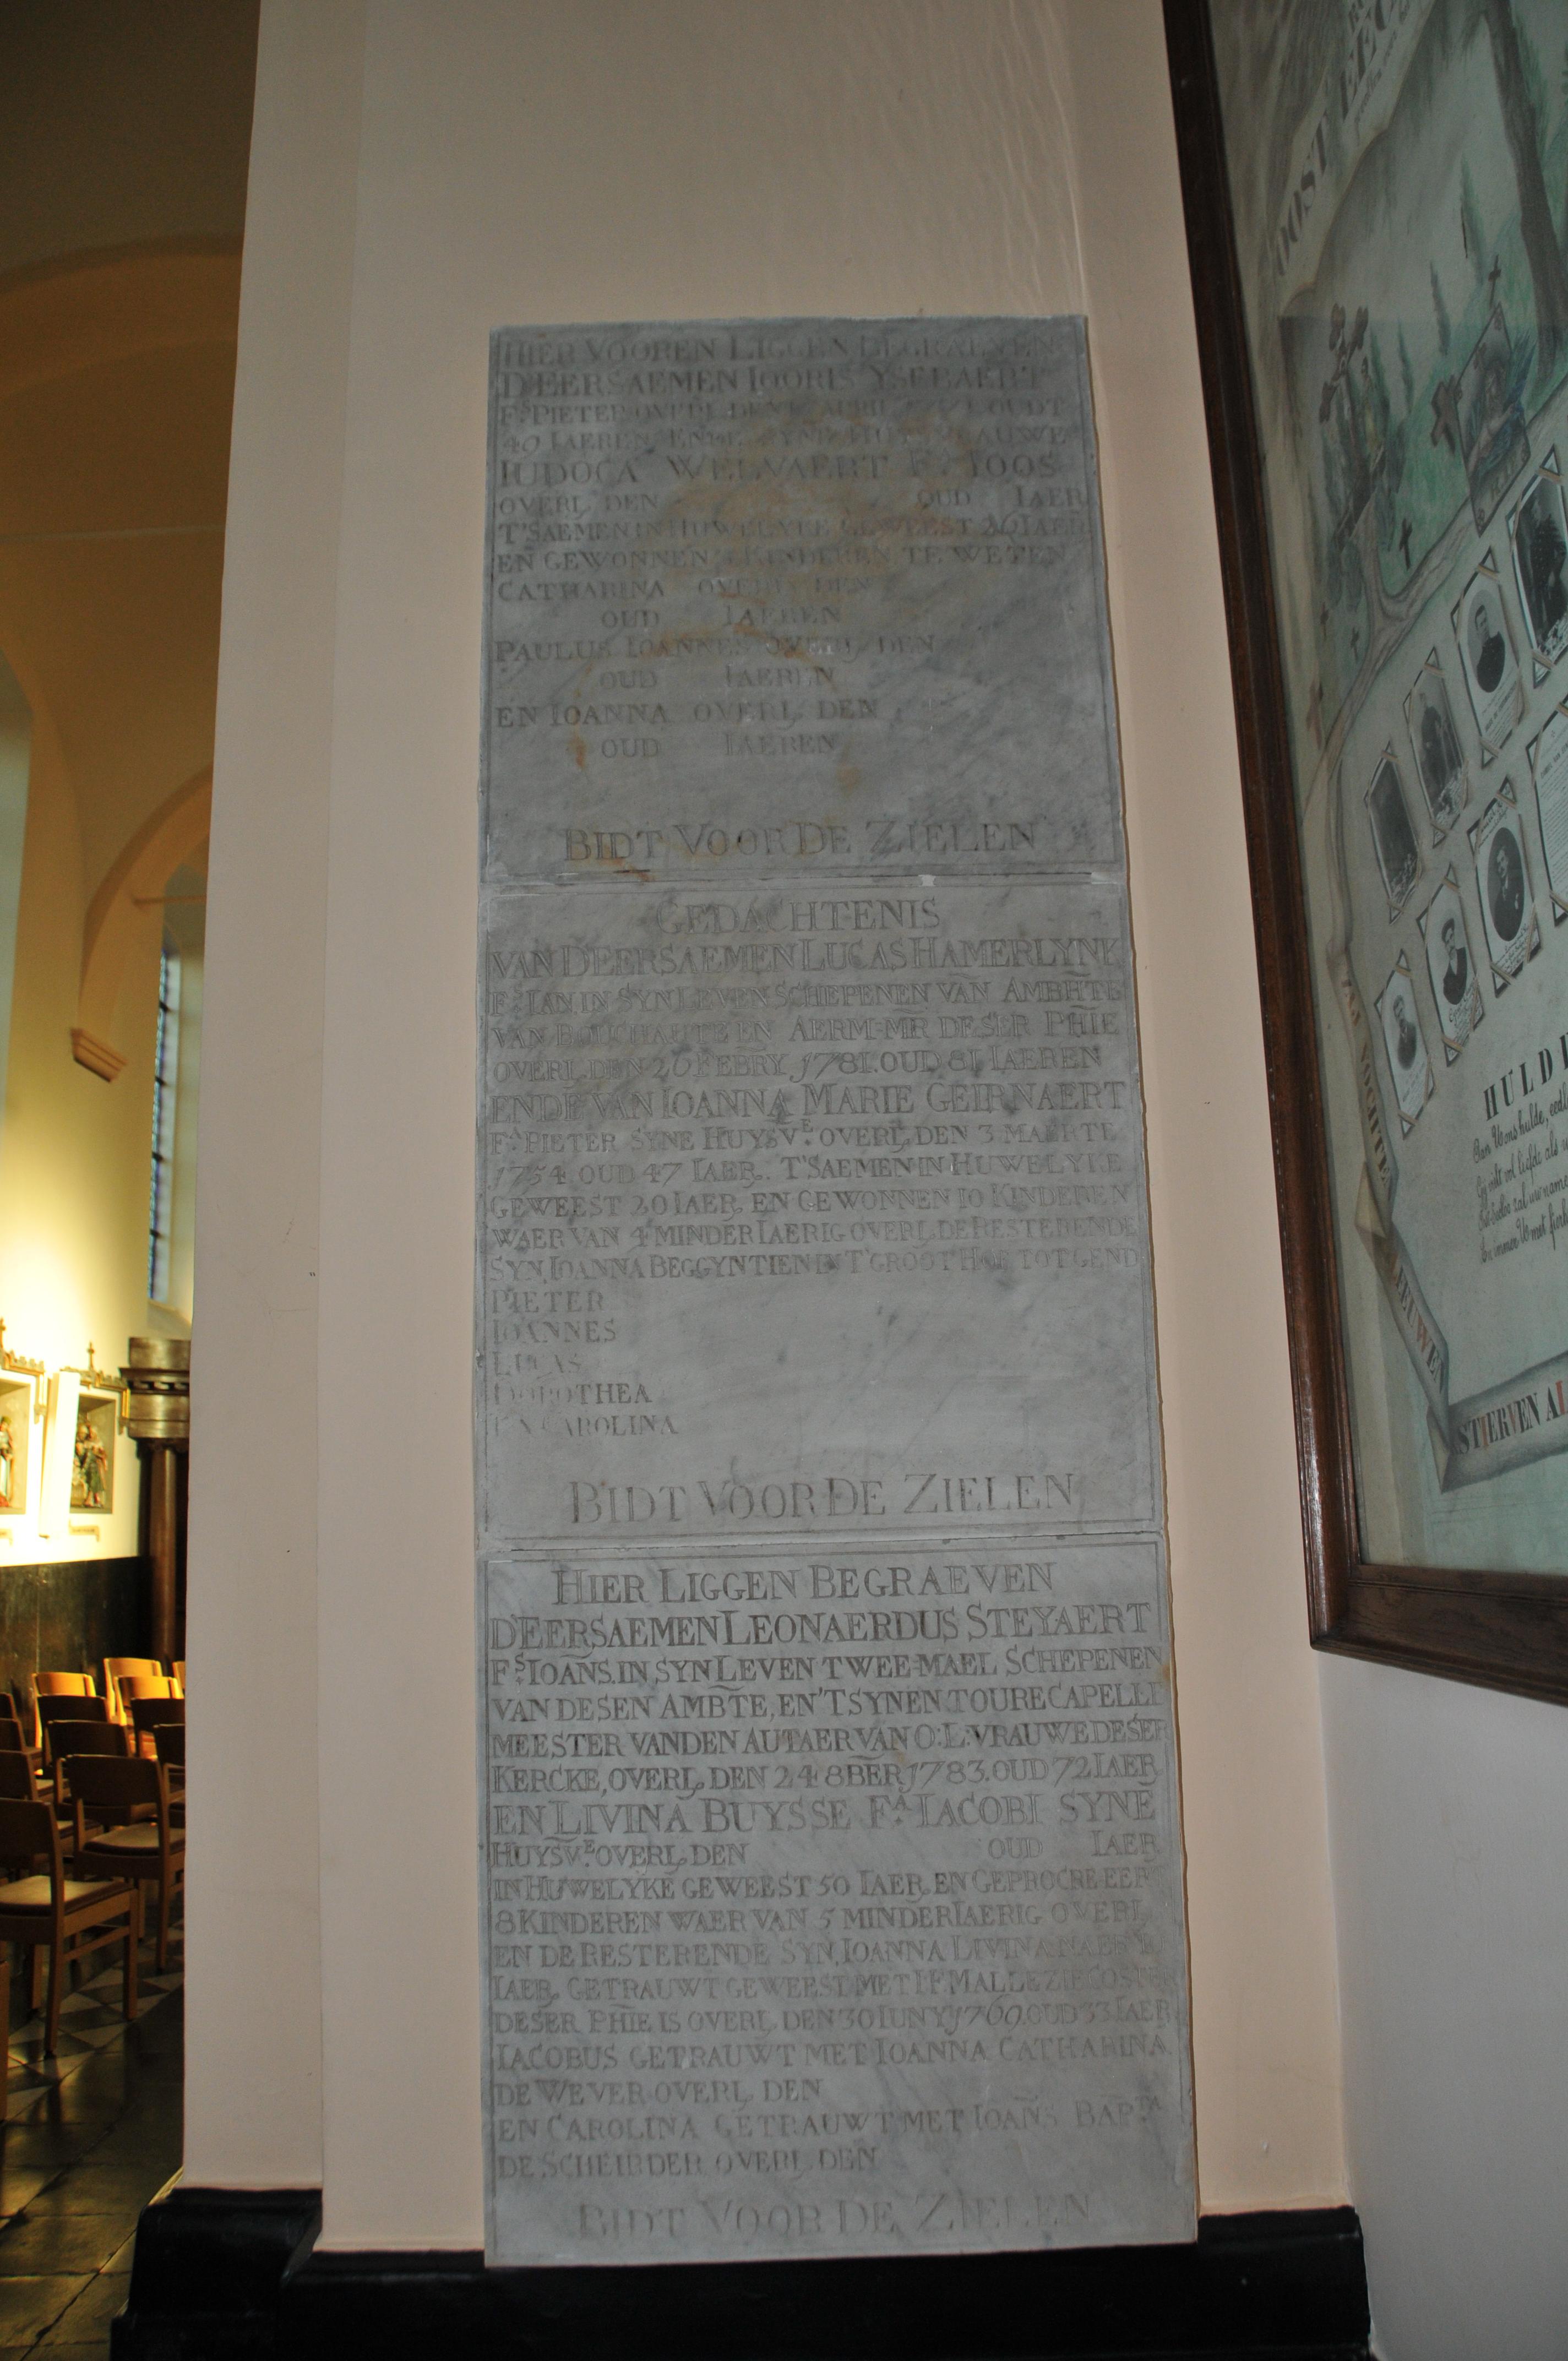 HIER VOOREN LIGGEN BEGRAEVEN
D'EERSAEMEN IOORIS YSEBAERT
F.S PIETER OVERL. DEN APRIL OUDT
40 IAEREN ENDE SYNE HUYSVRAUWE
IUDOCA WELVAERT F.A IOOS
OVERL. DEN OUD IAER
T'SAEMEN IN HUWELYKE GEWEEST 26 IAER
EN GEWONNEN KINDEREN TE WETEN
CATHARINA OVERL. DEN
OUD IAEREN
PAULUS IOANNES OVERL. DEN
OUD IAEREN
EN IOANNA OVERL. DEN
OUD IAEREN
BIDT VOOR DE ZIELEN
GEDACHTENIS
VAN D'EERSAEMEN LUCAS HAMERLYNK
F.S IAN. IN SYN LEVEN SCHEPENEN VAN AMBHTE
VAN BOUCHAUTE EN AERM-MR DESER PHIE
OVERL. DEN 20 FEBRY 1781. OUD 81 IAEREN
ENDE VAN IOANNA MARIE GEIRNAERT
F.A PIETER SYNE HUYSV.E OVERL. DEN 3 MAERTE
1754 OUD 47 IAER. T'SAEMEN IN HUWELYKE
GEWEEST 20 IAER EN GEWONNEN 10 KINDEREN
WAER VAN 4 MINDERIAERIG OVERL. DE RESTERENDE
SYN, IOANNA BEGGYNTIEN IN T'GROOT HOF TOT GEND
PIETER
IOANNES
LUCAS
DOROTHEA
EN CAROLINA
BIDT VOOR DE ZIELEN
HIER LIGGEN BEGRAEVEN
D'EERSAEMEN LEONAERDUS STEYAERT
F.S IOANS. IN SYN LEVEN TWEE-MAEL SCHEPENEN
VAN DESEN AMBTE, EN 'TSYNEN TOURE CAPELLE
MEESTER VANDEN AUTAER VAN O:L:VRAUWE DESER
KERCKE, OVERL. DEN 24 8BER 1783. OUD 72 IAER
EN LIVINA BUYSSE F.A IACOBI SYNE
HUYSV.E OVERL. DEN OUD IAER
IN HUWELYKE GEWEEST 50 IAER EN GEPROCREEERT
8 KINDEREN WAER VAN 5 MINDERIAERIG OVERL.
EN DE RESTERENDE SYN, IOANNA LIVINA NAER
IAER GETRAUWT GEWEEST MET I.F. MALLEZIE COSTER
DESER PHIE IS OVERL. DEN 30 IUNY 1769. OUD 33 IAER
IACOBUS GETRAUWT MET IOANNA CATHARINA
DE WEVER OVERL. DEN
EN CAROLINA GETRAUWT MET IOANS BAP.TA
DE SCHEIRDER OVERL. DEN
BIDT VOOR DE ZIELEN
OOST EEC
HULD
STIERVEN AL